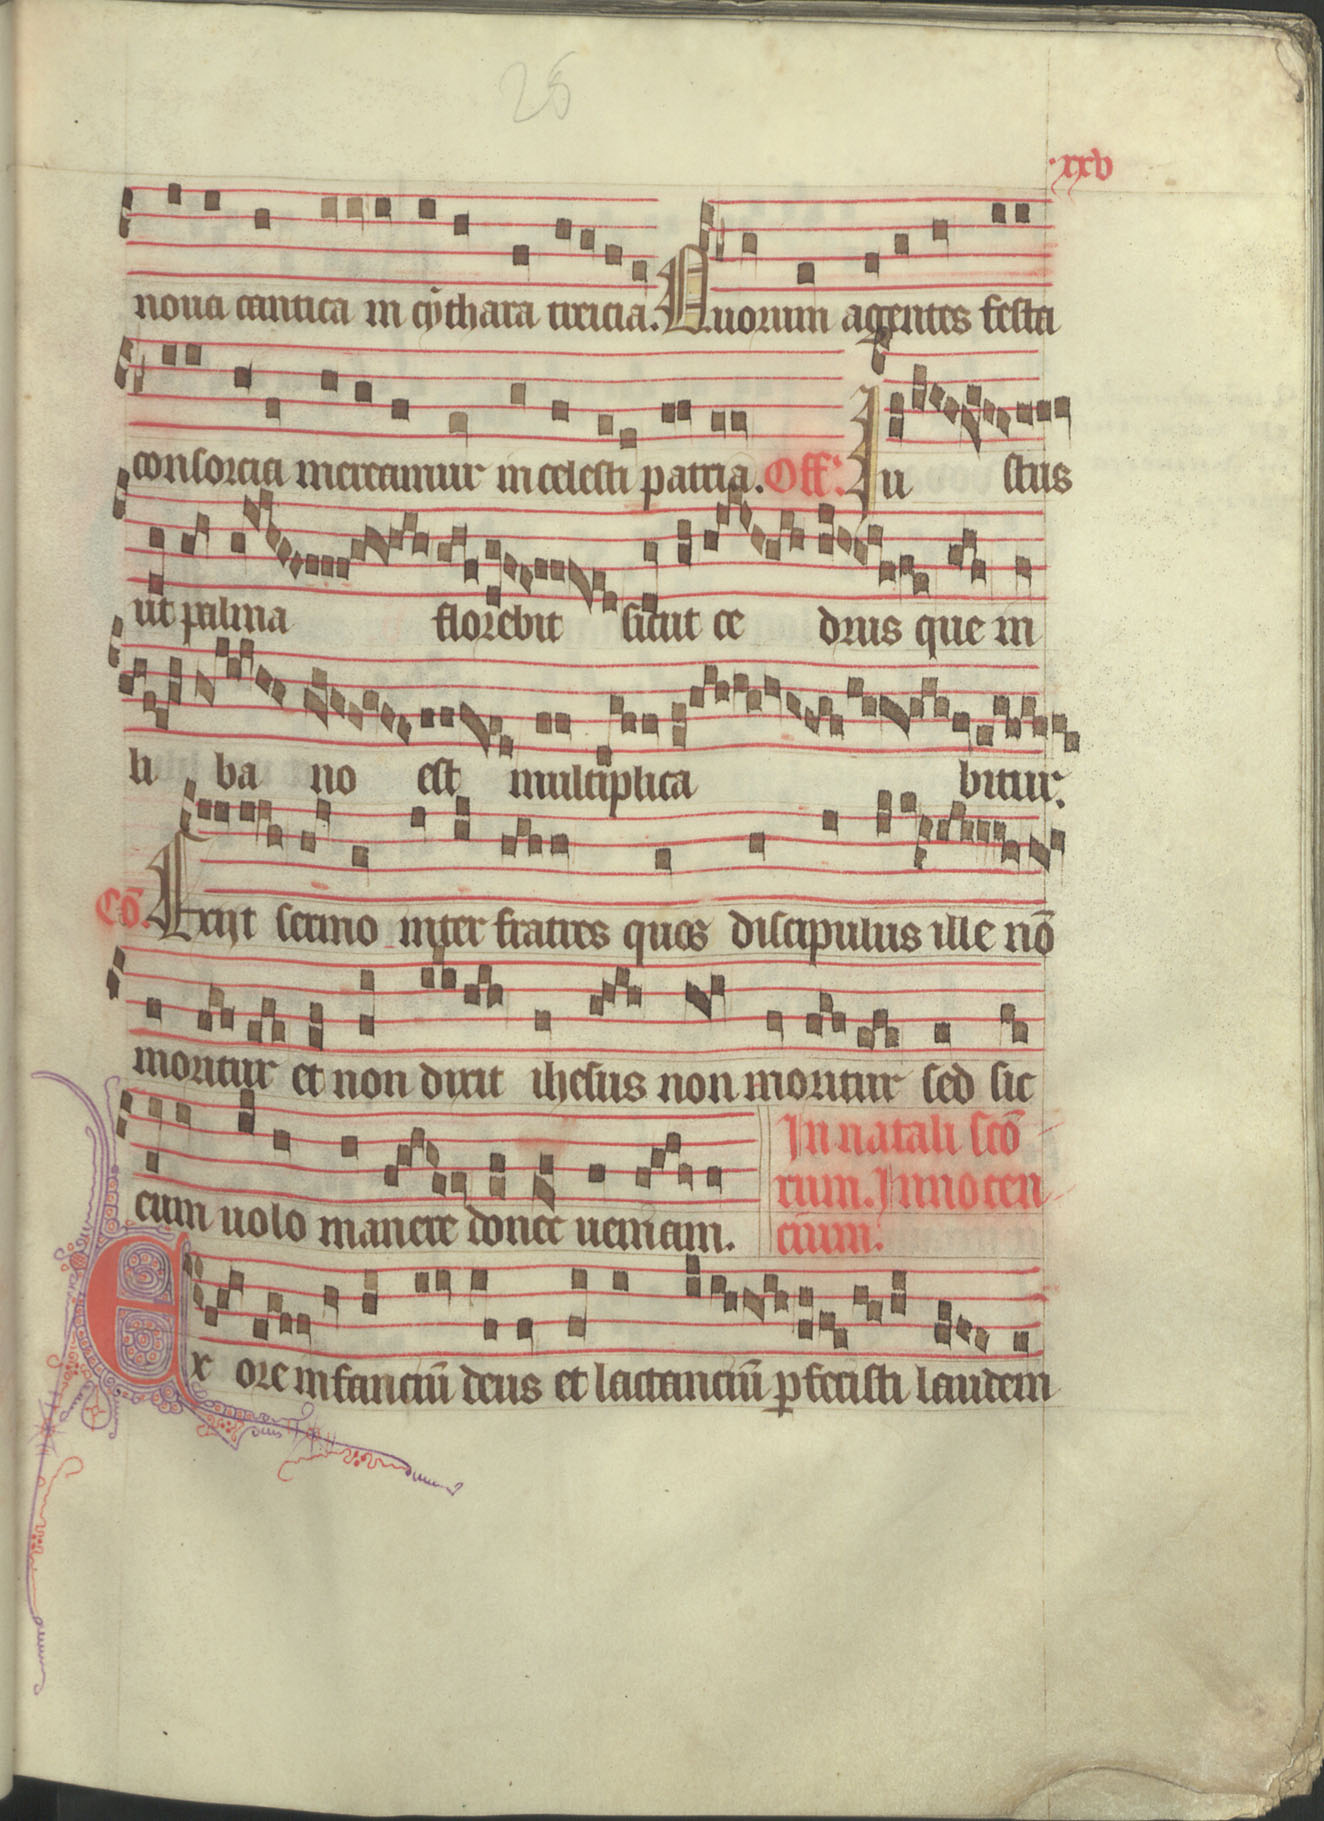 28
·xxv
noua cantica in cythara treicia. Quorum agentes festa
consorcia mereamur in celesti patria. Off. Iu stus
ut palma florebit sicut ce drus que in
li ba no est multiplica bitur.
Cō. Exijt sermo inter fratres quos discipulus ille nō
moritur et non dixit ihesus non moritur sed sic
eum uolo manere donec ueniam. In natali scō
rum. Innocen
cium.
Ex ore infanciū deus et lactanciū pfecisti laudem